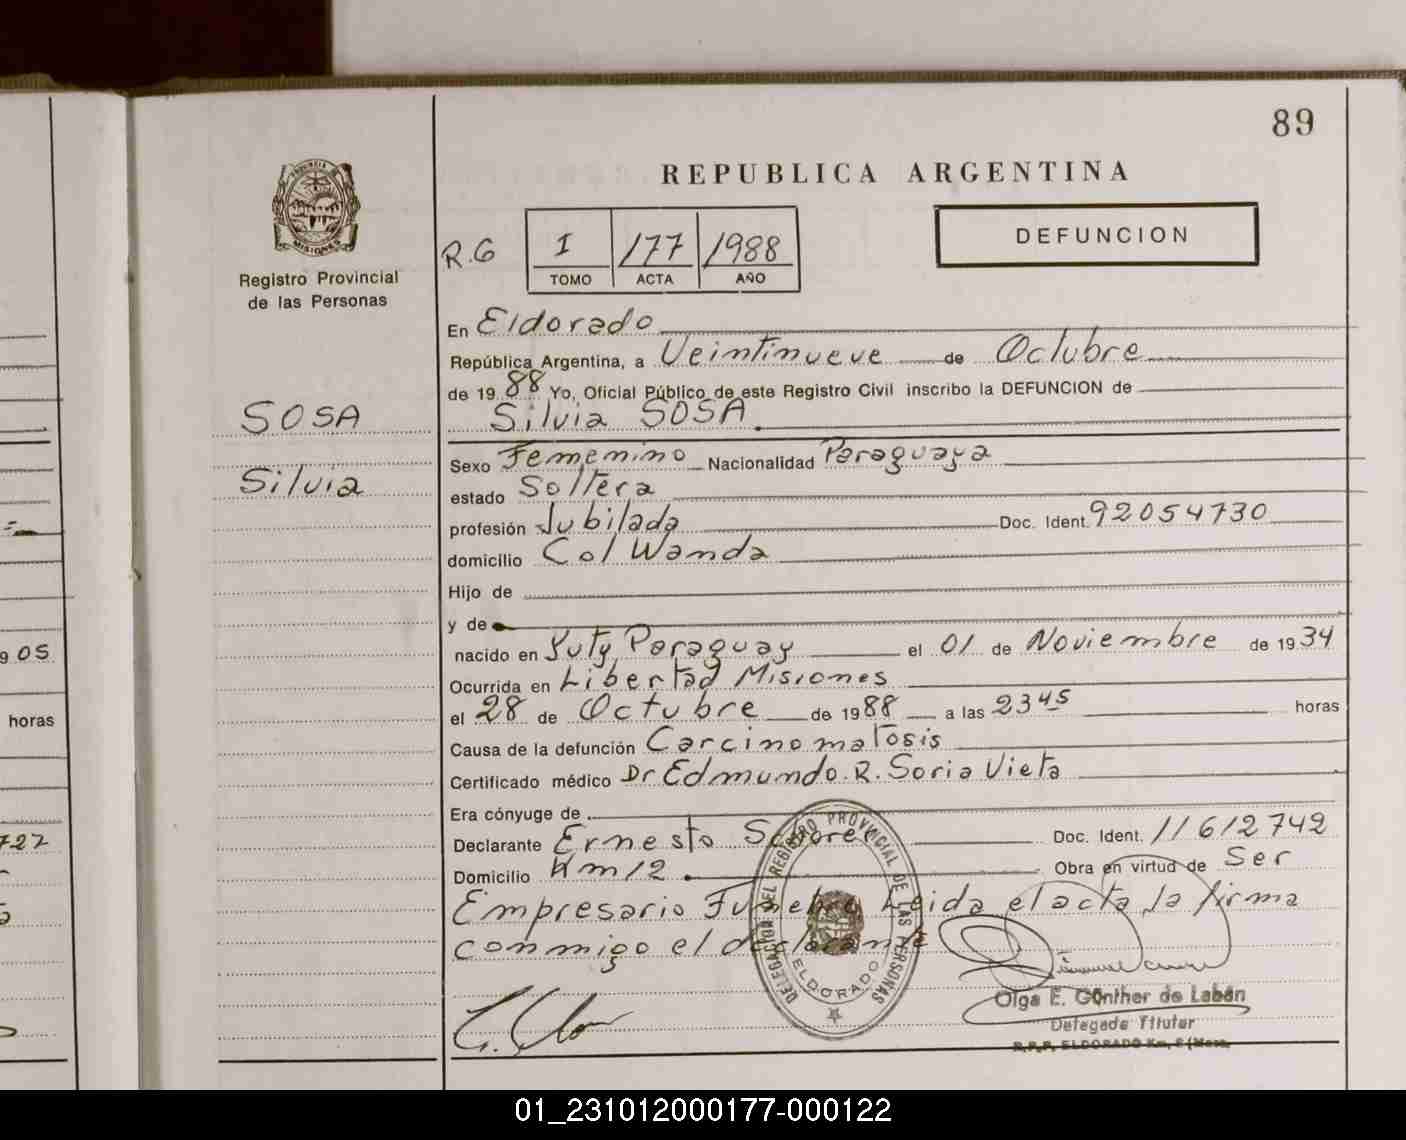 89
PROVINCIA
MISIONES
Registro Provincial
de las Personas
REPUBLICA ARGENTINA
R.G
I 177 1988
TOMO ACTA AÑO
DEFUNCION
En Eldorado
República Argentina, a Veintinueve de Octubre
de 1988 Yo, Oficial Público de este Registro Civil inscribo la DEFUNCION de
SOSA
Silvia SOSA
Sexo Femenino Nacionalidad Paraguaya
Silvia
estado Soltera
profesión Jubilada Doc. Ident. 92054730
domicilio Col Wanda
Hijo de
y de
905
nacido en Yuty Paraguay el 01 de Noviembre de 1934
Ocurrida en Libertad Misiones
horas
el 28 de Octubre de 1988 a las 23 45 horas
Causa de la defunción Carcinomatosis
Certificado médico Dr Edmundo. R. Soria Vieta
Era cónyuge de
727
Declarante Ernesto Doc. Ident. 11612742
Domicilio Km 12 Obra en virtud de Ser
Empresario Funebre Leida el acta la firma
conmigo el declarante
DELEGACION DEL REGISTRO PROVINCIAL DE LAS PERSONAS
ELDORADO
Olga E. Günther de Labán
Delegada Titular
R.P.P. ELDORADO Km.
01_231012000177-000122